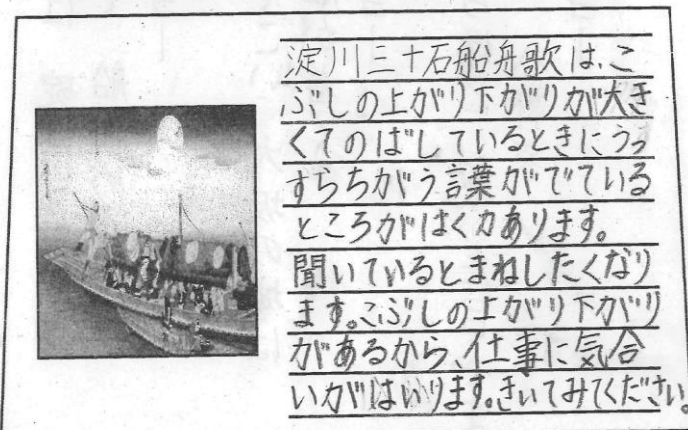 淀川三十石船舟歌は、こ
ぶしの上がり下がりが大き
くてのばしているときにうっ
すらちがう言葉がでている
ところがはく力あります。
聞いているとまねしたくなり
ます。こぶしの上がり下がり
があるから、仕事に気合
いがはいります。きいてみてください。